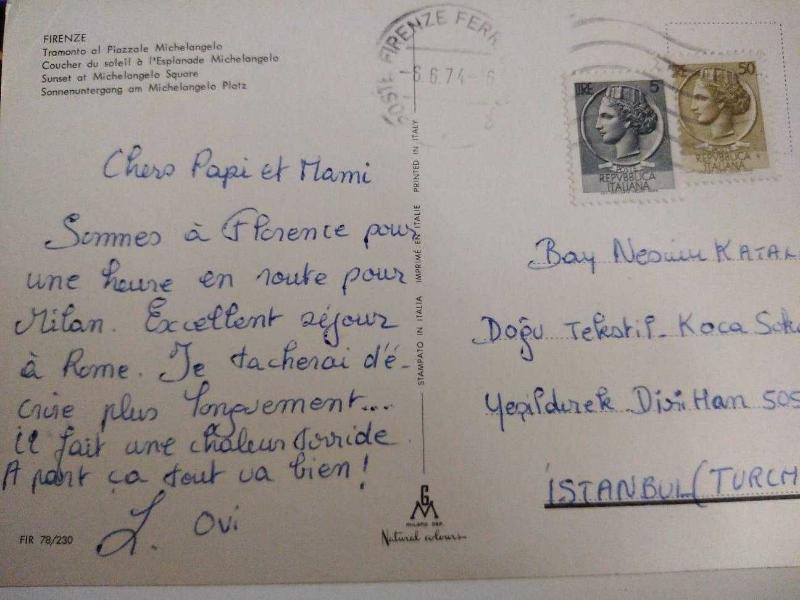 FIRENZE
Tramonto al Piazzale Michelangelo
Coucher du soleil à l'Esplanade Michelangelo
Sunset at Michelangelo Square
Sonnenuntergang am Michelangelo Platz
POSTE FIRENZE FERR
6.6.74
LIRE 5
POSTE
REPVBBLICA
ITALIANA
50
REPVBBLICA
ITALIANA
Chers Papi et Mami
Sommes à Florence pour
une heure en route pour
Milan. Excellent séjour
à Rome. Je tacherai d'é-
crire plus longuement...
il fait une chaleur torride
A part ça tout va bien!
L. Ovi
STAMPATO IN ITALIA IMPRIMÉ EN ITALIE PRINTED IN ITALY
Bay Nesim
Doğu Tekstil - Koca
Yeşildirek
İSTANBUL (TURCH
GM
MILANO
Natural colours
FIR 78/230